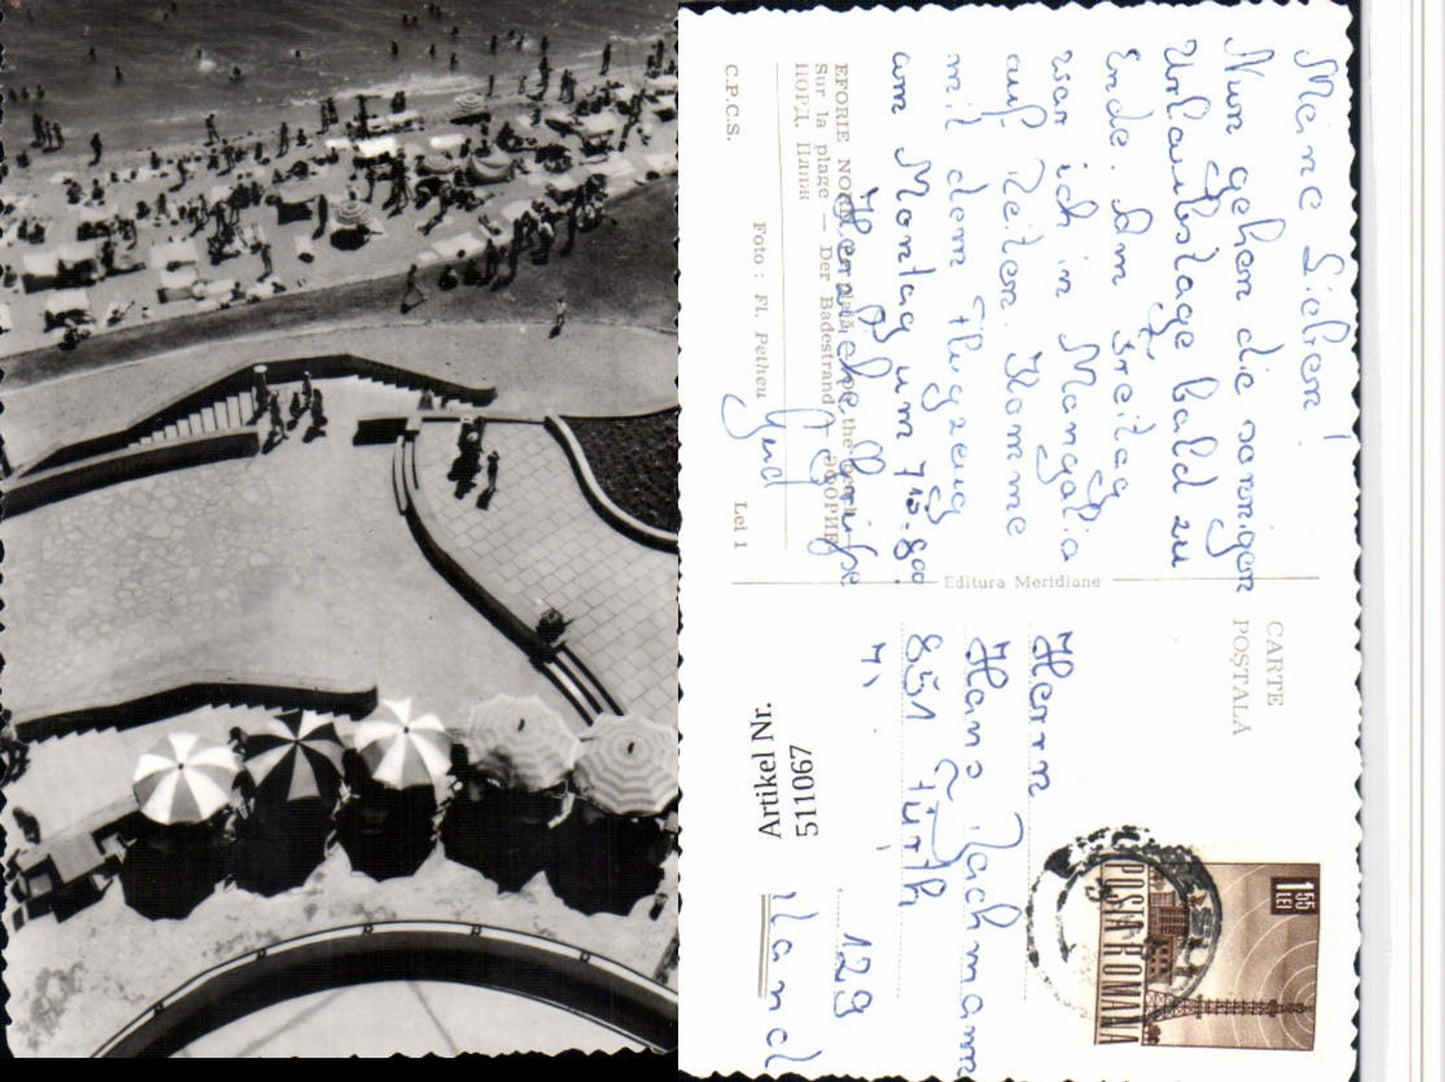 Meine Lieben!
Nun gehen die sonnigen
Urlaubstage bald zu
Ende. Am Freitag
war ich in Mangalia
auf Reiten. Komme
mit dem Flugzeug
am Montag um 7¹⁰-8⁰⁰.
Herzliche Grüße
EFORIE NORD
Sur la plage — Der Badestrand — ЭФОРИЕ
НОРД. Пляж
Foto: Fl. Petheu
C.P.C.S.
Lei 1
Editura Meridiane
CARTE
POȘTALĂ
Herrn
Hans
851 Fürth
129
Artikel Nr.
511067
1 55
LEI
POSTA ROMANA